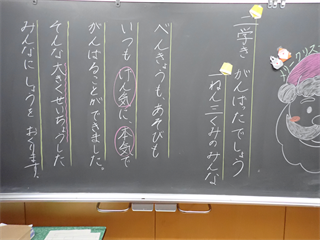 二学き
がんばったでしょう
一ねん三くみのみんな
べんきょうも、あそびも
いつもげん気に、本気で
がんばることができました。
そんな大きくせいちょうした
みんなにしょうをおくります!